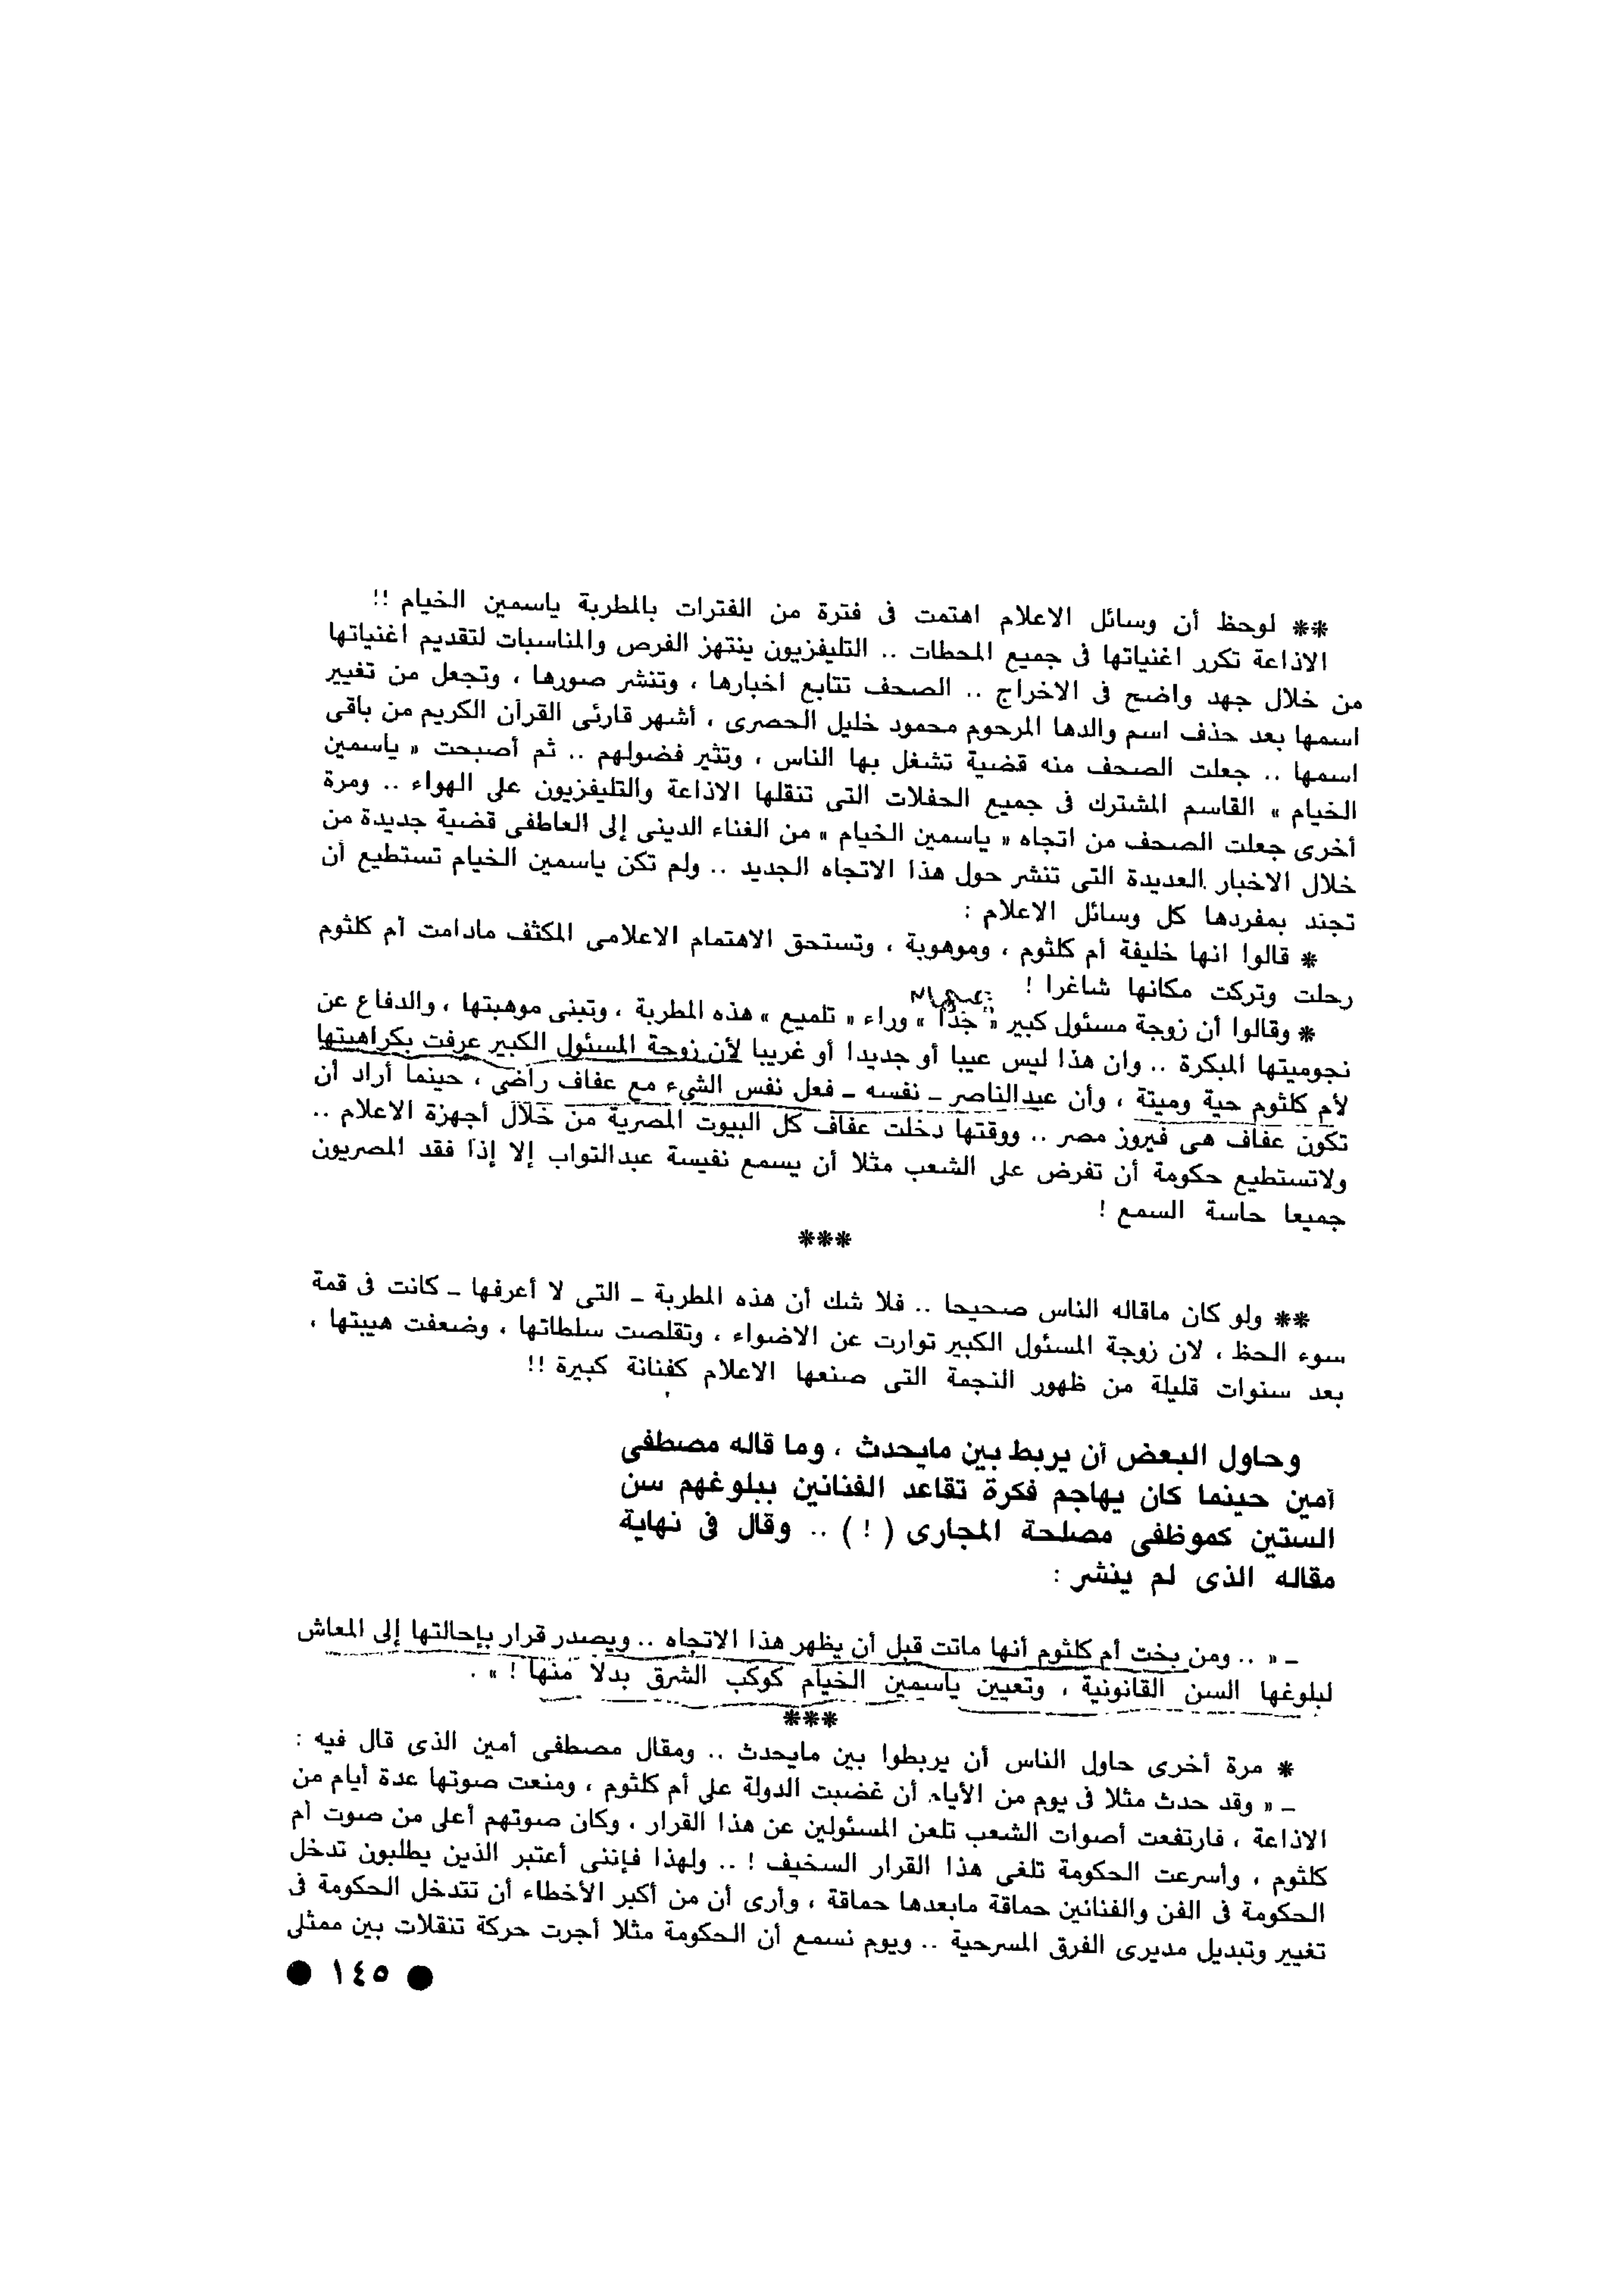 ** لوحظ أن وسائل الاعلام اهتمت فى فترة من الفترات بالمطربة ياسمين الخيام !!
الاذاعة تكرر اغنياتها فى جميع المحطات .. التليفزيون ينتهز الفرص والمناسبات لتقديم اغنياتها
من خلال جهد واضح فى الاخراج .. الصحف تتابع اخبارها ، وتنشر صورها ، وتجعل من تغيير
اسمها بعد حذف اسم والدها المرحوم محمود خليل الحصرى ، أشهر قارئى القرآن الكريم من باقى
اسمها .. جعلت الصحف منه قضية تشغل بها الناس ، وتثير فضولهم .. ثم أصبحت « ياسمين
الخيام » القاسم المشترك فى جميع الحفلات التى تنقلها الاذاعة والتليفزيون على الهواء .. ومرة
أخرى جعلت الصحف من اتجاه « ياسمين الخيام » من الغناء الدينى إلى العاطفى قضية جديدة من
خلال الاخبار العديدة التى تنشر حول هذا الاتجاه الجديد .. ولم تكن ياسمين الخيام تستطيع أن
تجند بمفردها كل وسائل الاعلام :
* قالوا انها خليفة أم كلثوم ، وموهوبة ، وتستحق الاهتمام الاعلامى المكثف مادامت أم كلثوم
رحلت وتركت مكانها شاغرا !
* وقالوا أن زوجة مسئول كبير « جدا » وراء « تلميع » هذه المطربة ، وتبنى موهبتها ، والدفاع عن
نجوميتها المبكرة .. وان هذا ليس عيبا أو جديدا أو غريبا لأن زوجة المسئول الكبير عرفت بكراهيتها
لأم كلثوم حية وميتة ، وأن عبدالناصر ـ نفسه ـ فعل نفس الشيء مع عفاف راضى ، حينما أراد أن
تكون عفاف هى فيروز مصر .. ووقتها دخلت عفاف كل البيوت المصرية من خلال أجهزة الاعلام ..
ولاتستطيع حكومة أن تفرض على الشعب مثلا أن يسمع نفيسة عبدالتواب إلا إذا فقد المصريون
جميعا حاسة السمع !
***
** ولو كان ماقاله الناس صحيحا .. فلا شك أن هذه المطربة ـ التى لا أعرفها ـ كانت فى قمة
سوء الحظ ، لان زوجة المسئول الكبير توارت عن الاضواء ، وتقلصت سلطاتها ، وضعفت هيبتها ،
بعد سنوات قليلة من ظهور النجمة التى صنعها الاعلام كفنانة كبيرة !!
وحاول البعض أن يربط بين مايحدث ، وما قاله مصطفى
أمين حينما كان يهاجم فكرة تقاعد الفنانين ببلوغهم سن
الستين كموظفى مصلحة المجارى ( ! ) .. وقال فى نهاية
مقاله الذى لم ينشر :
ـ « .. ومن بخت أم كلثوم أنها ماتت قبل أن يظهر هذا الاتجاه .. ويصدر قرار بإحالتها إلى المعاش
لبلوغها السن القانونية ، وتعيين ياسمين الخيام كوكب الشرق بدلا منها ! » .
***
* مرة أخرى حاول الناس أن يربطوا بين مايحدث .. ومقال مصطفى أمين الذى قال فيه :
ـ « وقد حدث مثلا فى يوم من الأيام أن غضبت الدولة على أم كلثوم ، ومنعت صوتها عدة أيام من
الاذاعة ، فارتفعت أصوات الشعب تلعن المسئولين عن هذا القرار ، وكان صوتهم أعلى من صوت أم
كلثوم ، وأسرعت الحكومة تلغى هذا القرار السخيف ! .. ولهذا فإننى أعتبر الذين يطلبون تدخل
الحكومة فى الفن والفنانين حماقة مابعدها حماقة ، وأرى أن من أكبر الأخطاء أن تتدخل الحكومة فى
تغيير وتبديل مديرى الفرق المسرحية .. ويوم نسمع أن الحكومة مثلا أجرت حركة تنقلات بين ممثلى
● ١٤٥ ●